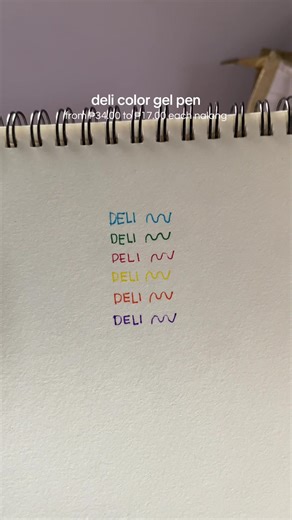 deli color gel pen
from ₱34.00 to ₱17.00 each nalang
DELI
DELI
DELI
DELI
DELI
DELI